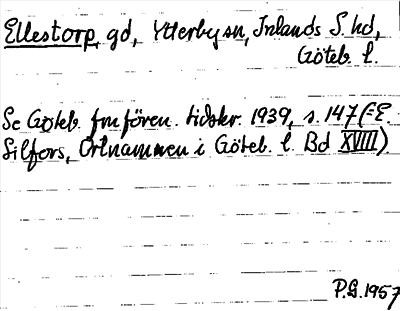 Ellestorp, gd, Ytterby sn, Inlands S. hd,
Göteb. l.
Se Göteb. fmfören. tidskr. 1939, s. 147 (= E.
Silfors, Ortnamnen i Göteb. l. Bd XVIII)
P.G. 1957